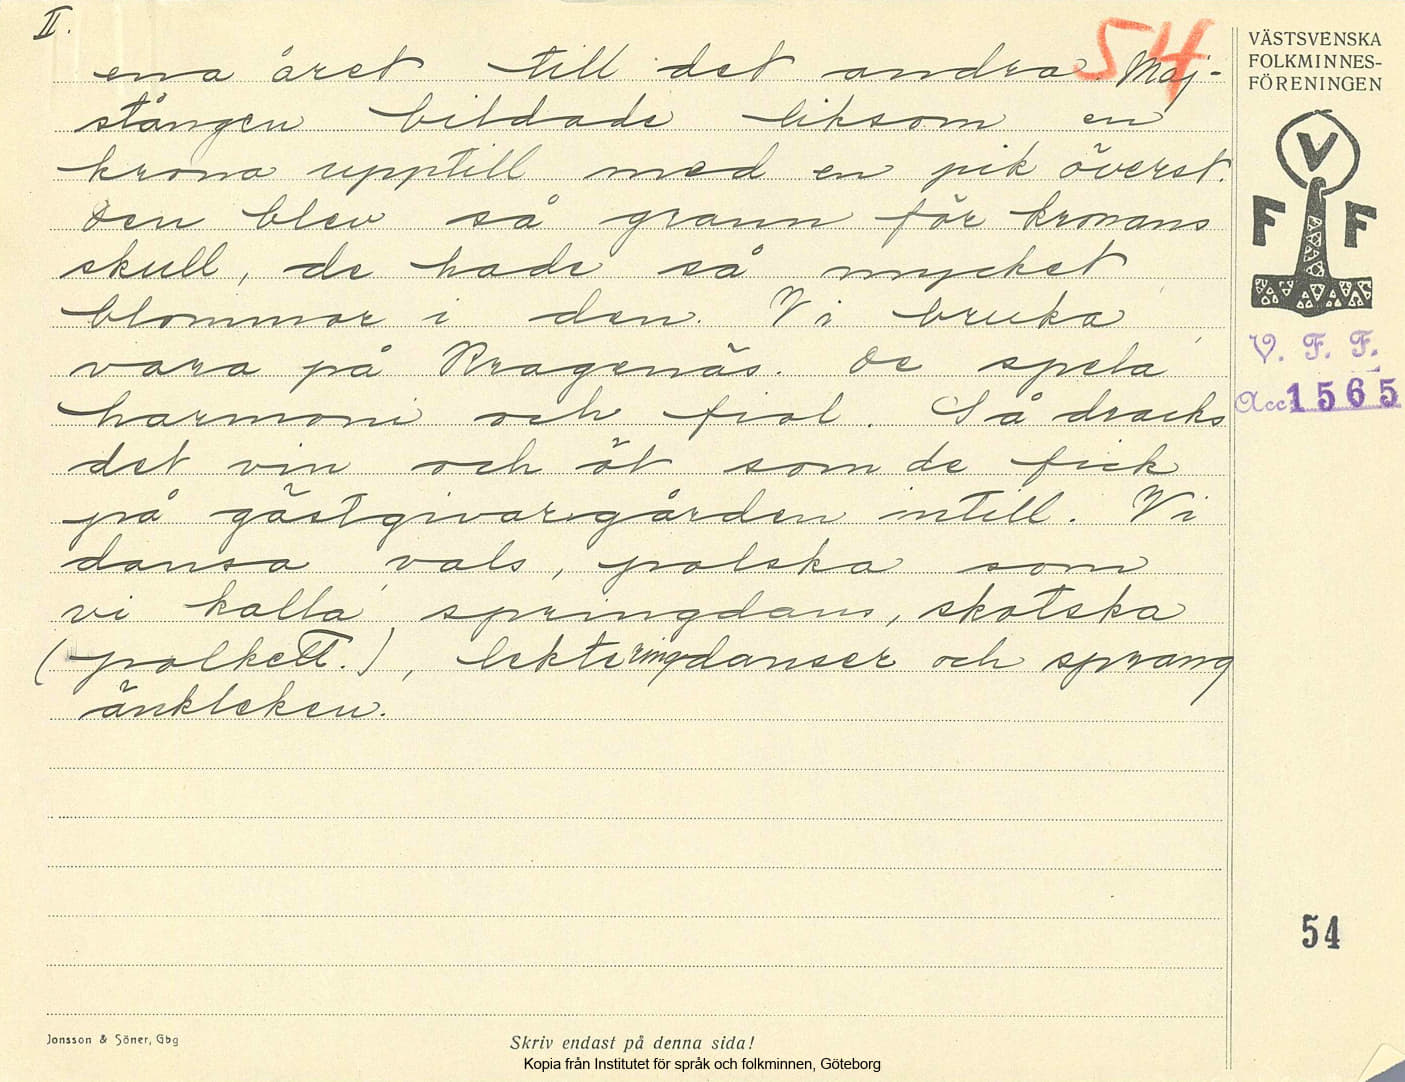 II.
54
ena året till det andra. Maj-
stången bildade liksom en
krona upptill med en pik överst.
Den blev så grann för kronans
skull, de hade så mycket
blommor i den. Vi bruka'
vara på Kragenäs. De spela'
harmoni och fiol. Så dracks
det vin och öt som de fick
på gästgivargården intill. Vi
dansa' vals, polska som
vi kalla' springdans, skotska
(polkett.), lekte ringdanser och sprang
änkleken.
VÄSTSVENSKA
FOLKMINNES-
FÖRENINGEN
V
F F
V. F. F.
Acc: 1565
54
Jonsson & Söner, Gbg
Skriv endast på denna sida!
Kopia från Institutet för språk och folkminnen, Göteborg